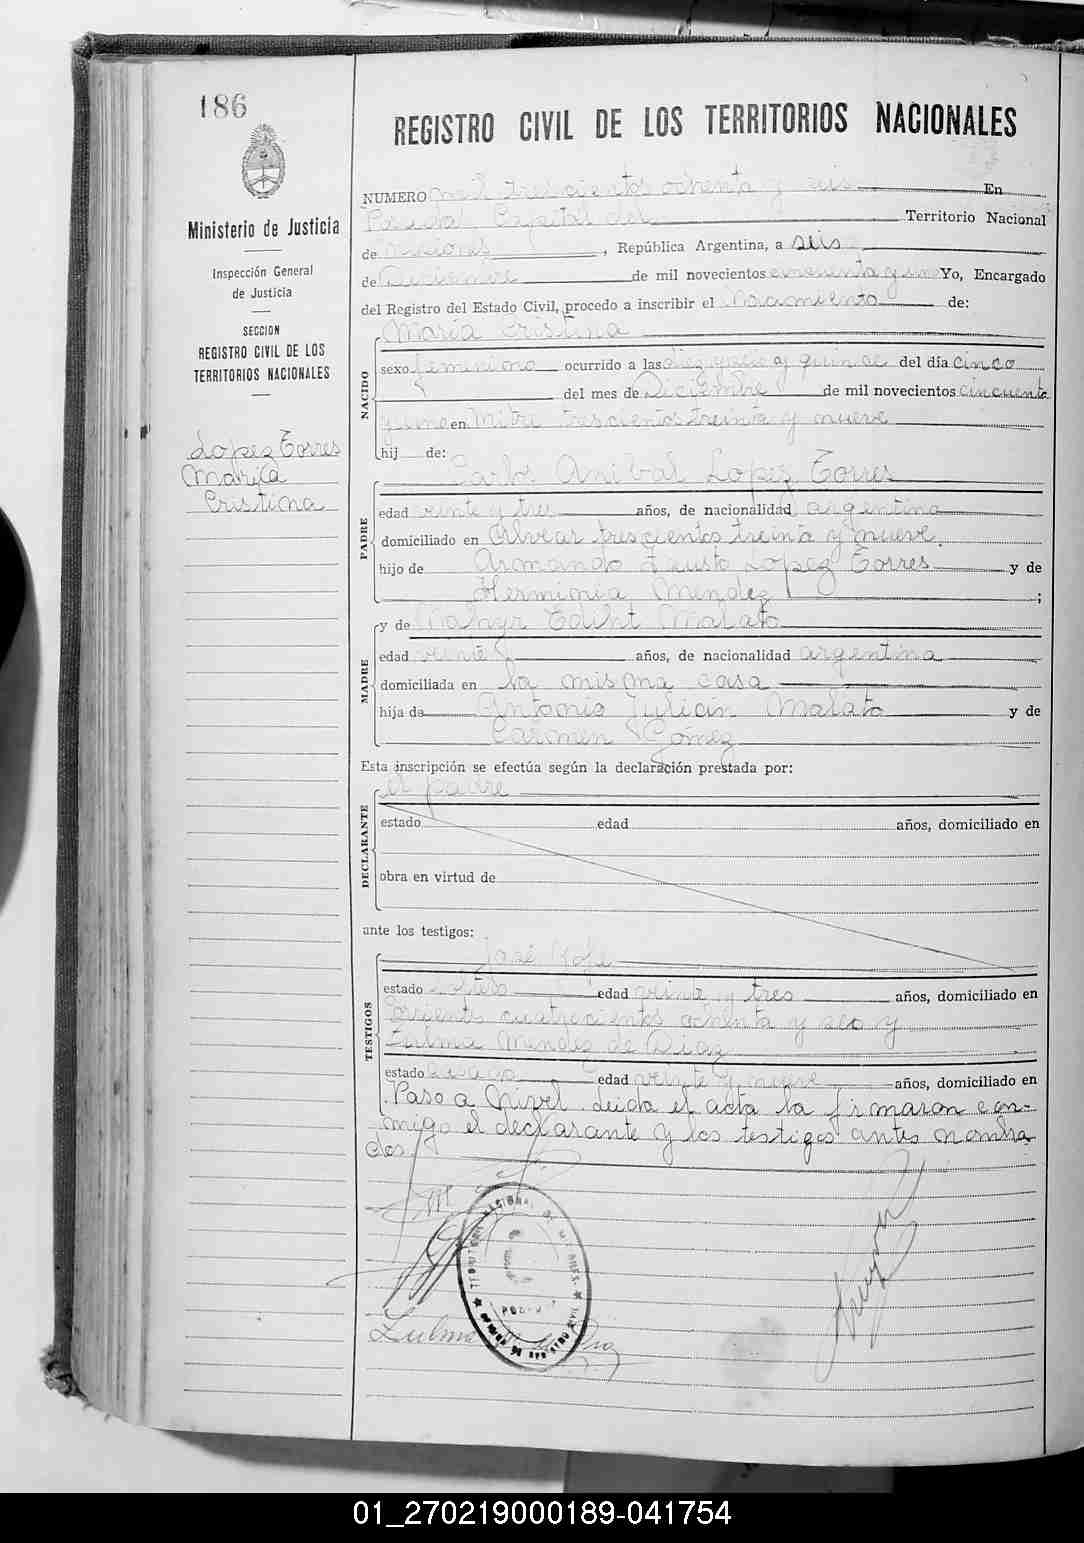 186
REGISTRO CIVIL DE LOS TERRITORIOS NACIONALES
Ministerio de Justicia
Inspección General
de Justicia
SECCION
REGISTRO CIVIL DE LOS
TERRITORIOS NACIONALES
Lopez Torres
Maria
Cristina
NUMERO mil trescientos ochenta y seis En
Posadas Capital del Territorio Nacional
de Misiones, República Argentina, a seis
de Diciembre de mil novecientos cincuenta y uno Yo, Encargado
del Registro del Estado Civil, procedo a inscribir el Nacimiento de:
NACIDO
Maria Cristina
sexo femenino ocurrido a las y quince del día cinco
del mes de Diciembre de mil novecientos cincuenta
y uno en Mitre trescientos treinta y nueve
hij de:
PADRE
Carlos Anibal Lopez Torres
edad veinte y tres años, de nacionalidad argentina
domiciliado en Alvear trescientos treinta y nueve
hijo de Armando Fausto Lopez Torres y de
Herminia Mendez ;
MADRE
y de Nahyr Ediht Malato
edad veinte años, de nacionalidad argentina
domiciliada en la misma casa
hija de Antonio Julian Malato y de
Carmen Gómez
Esta inscripción se efectúa según la declaración prestada por:
DECLARANTE
el padre
estado edad años, domiciliado en
obra en virtud de
ante los testigos:
TESTIGOS
José
estado soltero edad treinta y tres años, domiciliado en
Corrientes cuatrocientos ochenta y seis y
Zulma Mendez de Diaz
estado edad veinte y nueve años, domiciliado en
Paso a Nivel. Leida el acta la firmaron con-
migo el declarante y los testigos antes nombra
dos.
TERRITORIO NACIONAL DE MISIONES
POSADAS
Zulma M de Diaz
01_270219000189-041754